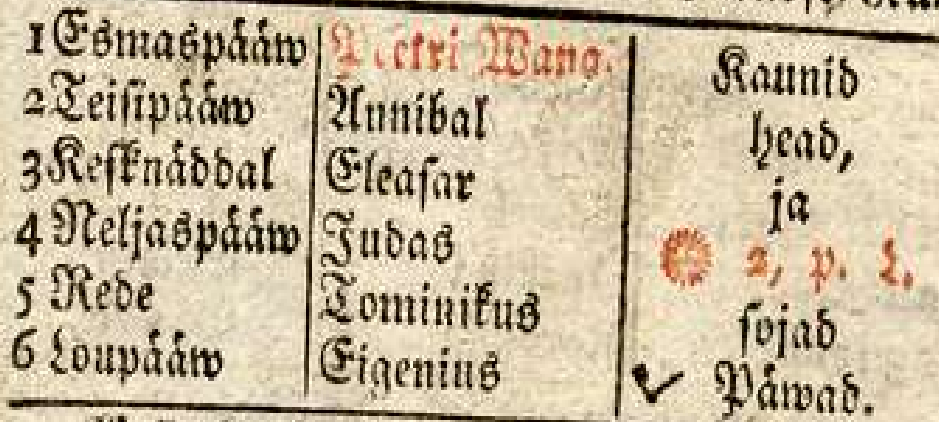 1 Esmaspååw Peetri Wang. Kaunid
2 Teisipååw Annibal head,
3 Kesknåddal Eleasar ja
4 Neljaspååw Judas 2, p. L.
5 Rede Tominikus sojad
6 Loupååw Eigenius Påwad.